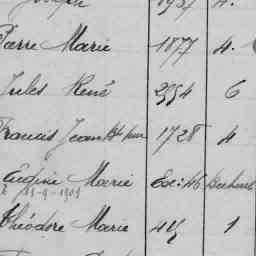 Joseph 1937 4.
Pierre Marie 1877 4.
Jules René 2994 6
Francis Jean Bte 1728 4
Eugène Marie Exc: 46
11-9-1909
Théodore Marie 1